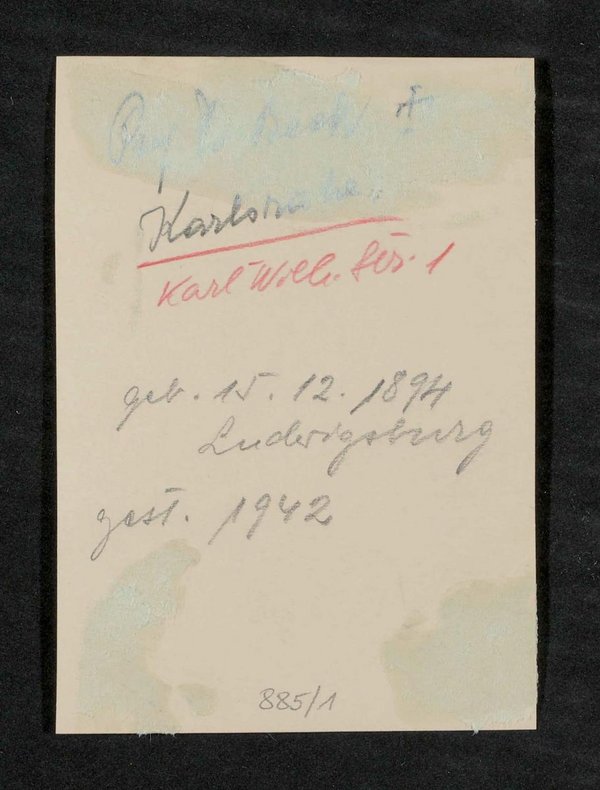 Prof. †
Karlsruhe.
Karl Wilh. Str. 1
geb. 15. 12. 1894
Ludwigsburg
gest. 1942
885/1